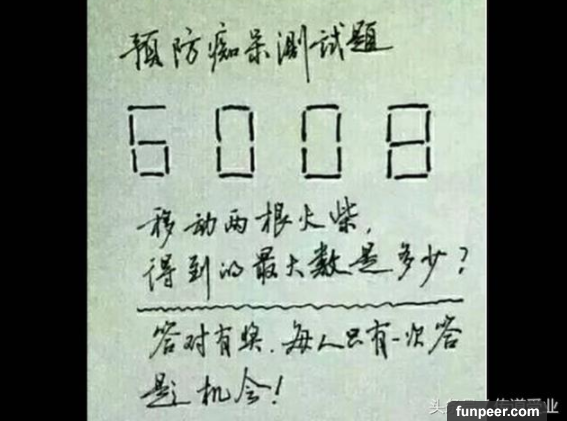 预防痴呆测试题
6008
移动两根火柴,
得到的最大数是多少?
答对有奖.每人只有一次答
题机会!
funpeer.com